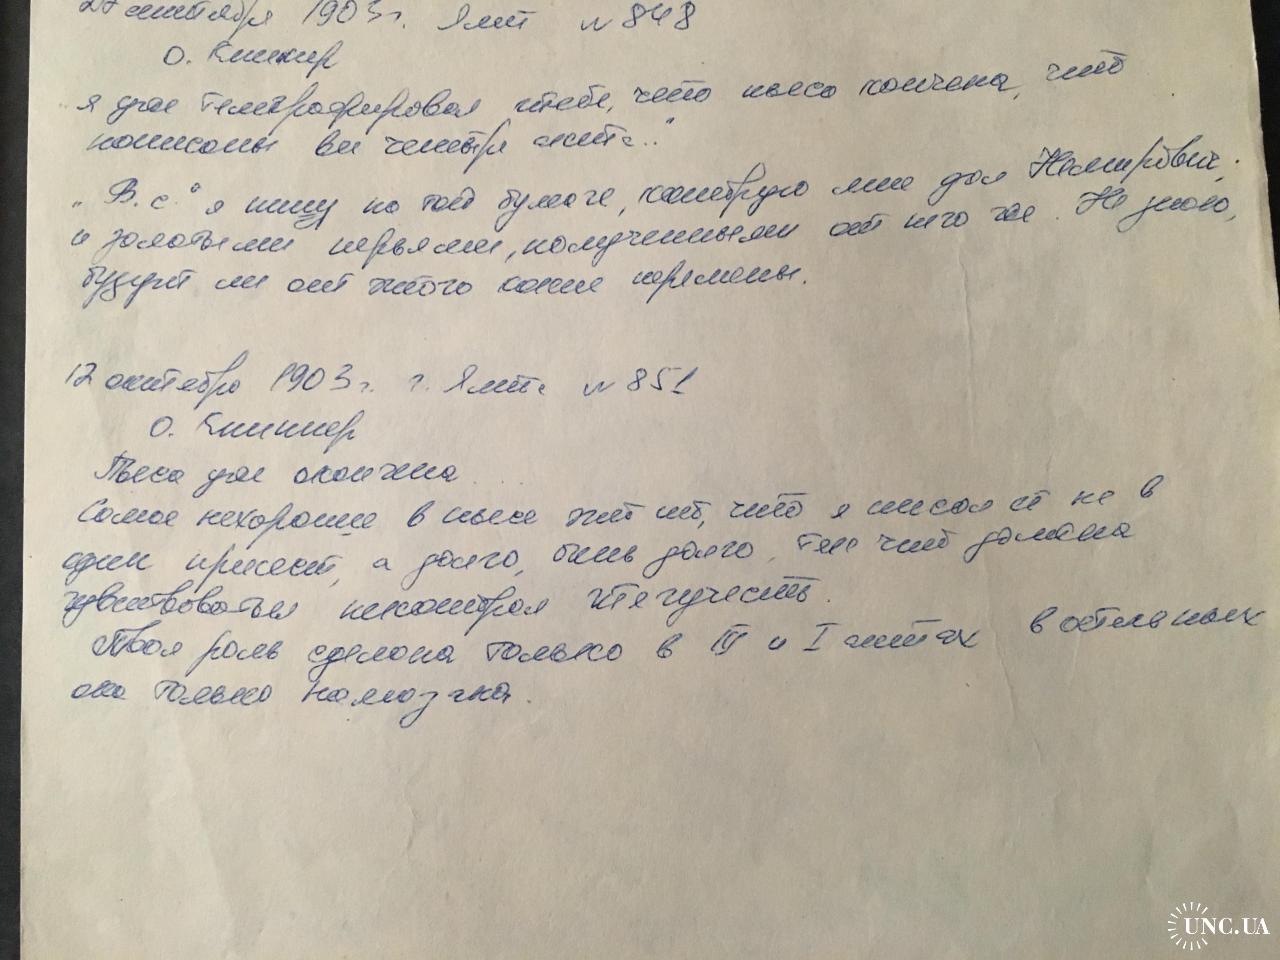 27 сентября 1903 г. Ялта № 848
О. Книппер
я уже телеграфировал тебе, что пьеса кончена, что
написаны все четыре акта.."
„В. с." я пишу на той бумаге, которую мне дал Немирович,
и золотыми перьями, полученными от него же. Не знаю,
будут ли от этого какие перемены.
12 октября 1903 г. г. Ялта № 851
О. Книппер
Пьеса уже окончена
Самое нехорошее в пьесе это то, что я писал её не в
один присест, а долго, очень долго, так что должна
чувствоваться некоторая тягучесть.
Твоя роль сделана только в III и I актах в остальных
она только намазана.
UNC.UA